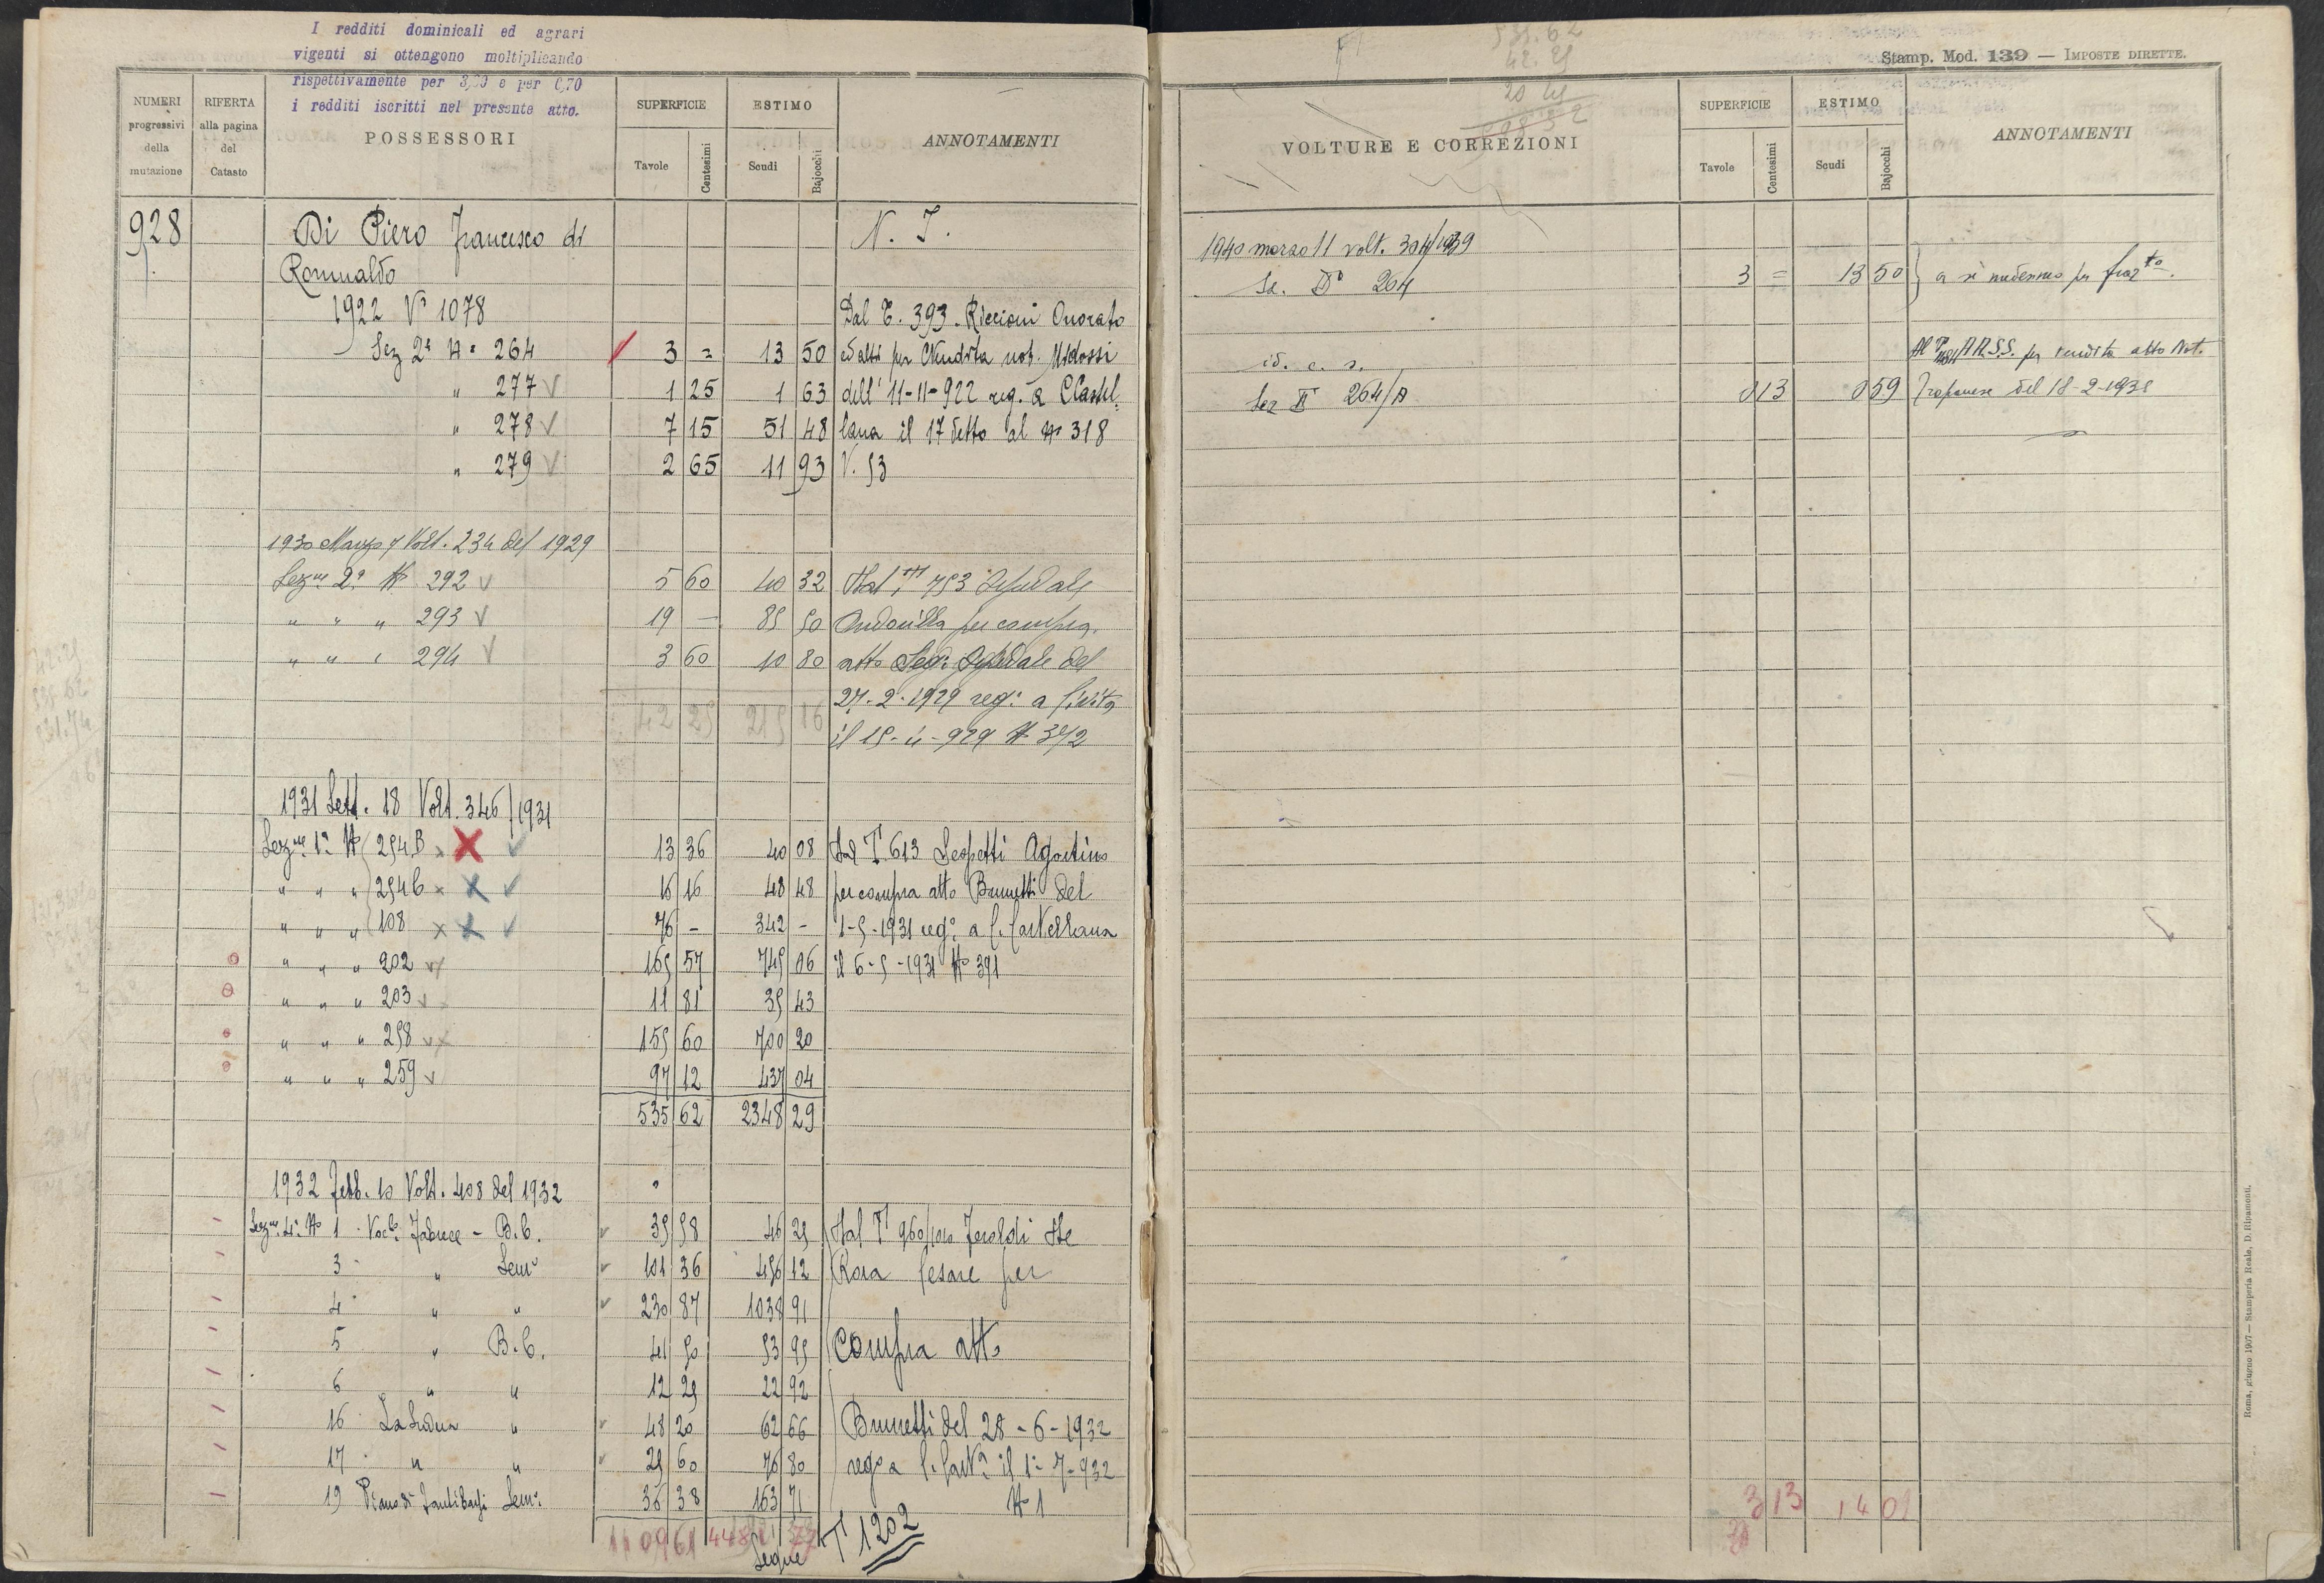 I redditi dominicali ed agrari
vigenti si ottengono moltiplicando
rispettivamente per 3,30 e per 0,70
i redditi iscritti nel presente atto.
NUMERI progressivi della mutazione
RIFERTA alla pagina del Catasto
POSSESSORI
SUPERFICIE
Tavole
Centesimi
ESTIMO
Scudi
Bajocchi
ANNOTAMENTI
928 Di Piero Francesco di N. I.
Romualdo
1922 Nº 1078 Dal T. 393. Riccioni Onorato
Sez 2ª Nº 264 3 = 13 50 ed altri per Vendita not. Midossi
" 277 V 1 25 1 63 dell' 11-11-922 reg. a C Castel=
" 278 V 7 15 51 48 lana il 17 detto al Nº 318
" 279 V 2 65 11 93 V. 53
1930 Marzo 7 Volt. 234 del 1929
Sezne 2ª Nº 292 V 5 60 40 32 Dal T 753
" " " 293 V 19 — 85 50 per compra
" " " 294 V 3 60 10 80 atto del
42 25 215 16 27-2-1929 reg: a Civita
il 15-4-929 Nº 372
1931 Sett. 18 Volt. 346/1931
Sezne 1ª Nº 254B x X ✓ 13 36 40 08 Dal T 613 Lespetti Agostino
" " " 254C x X ✓ 16 16 48 48 per compra atto Brunetti del
" " " 108 x X ✓ 76 - 342 - 1-5-1931 regº a C. Castellana
" " " 202 165 57 745 06 il 6-5-1931 Nº 391
" " " 203 11 81 35 43
" " " 258 155 60 700 20
" " " 259 97 12 437 04
535 62 2348 29
1932 Febb. 10 Volt. 408 del 1932
Sezne 4ª Nº 1 Vocº Fabrece - B.C. 35 58 46 25 Dal T 960/1010 Feroldi De
3 " Semº 101 36 456 12 Rosa Cesare per
4 " " 230 87 1038 91
5 " B.C. 41 50 53 95 Compra atto
6 " " 12 25 22 92
16 " 48 20 62 66 Brunetti del 28-6-1932
17 " " 25 60 76 80 regº a C. Castna il 1º-7-932
19 Piano di Semº 36 38 163 71 Nº 1
1109 61 77
Segue T 1202
535.62
42.25
Stamp. Mod. 139 — IMPOSTE DIRETTE.
VOLTURE E CORREZIONI
SUPERFICIE
Tavole
Centesimi
ESTIMO
Scudi
Bajocchi
ANNOTAMENTI
1940 marzo 11 volt. 304/1939
Se. IIº 264 3 = 13 50 } a sè medesimo per frazto.
id. c. s. per vendita atto Not.
Sez II 264/A 0 13 0 59 Trapanese del 18-2-1938
3 13 14 01
Roma, giugno 1907 — Stamperia Reale, D. Ripamonti.